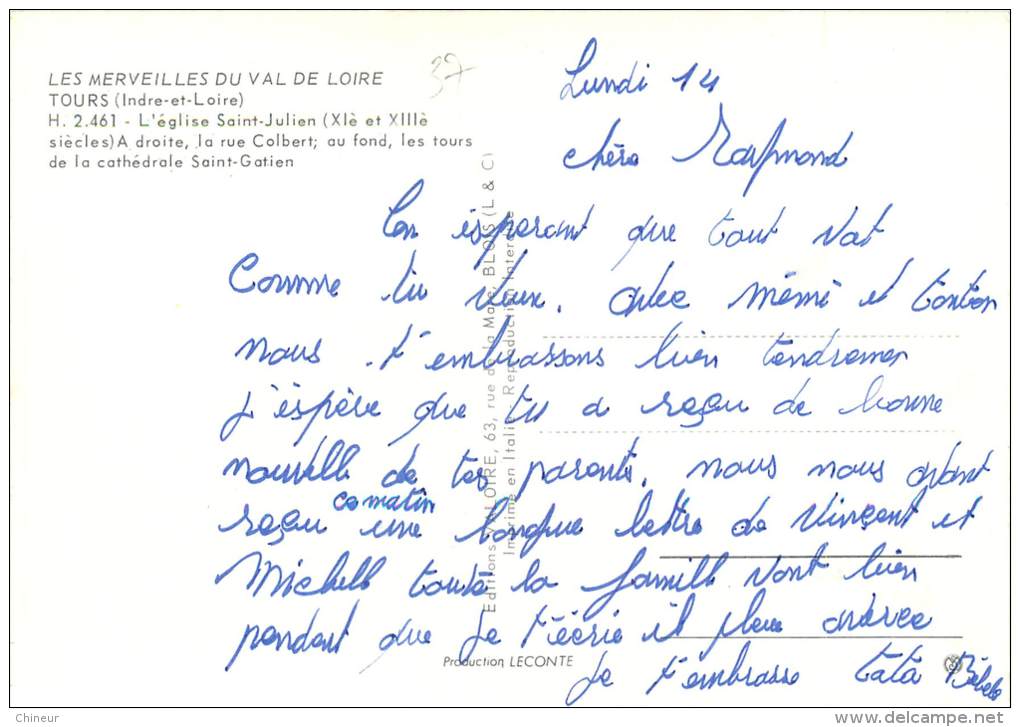 LES MERVEILLES DU VAL DE LOIRE
TOURS (Indre-et-Loire)
H. 2.461 - L'église Saint-Julien (XIè et XIIIè
siècles) A droite, la rue Colbert; au fond, les tours
de la cathédrale Saint-Gatien
37
Lundi 14
chère Raymond
En esperant que tout vat
Comme tu veux. avec mémé et tonton
nous t'embrassons bien tendremen
j'éspère que tu a reçu de bonne
nouvelle de tes parents. nous nous avont
ce matin
reçu une longue lettre de Vinçent et
Michell toute la famille vont bien
pendant que je t'éérie il pleux
je t'embrasse tata Bébele
Editions VALOIRE, 63, rue de la Mare, BLOIS (L & C)
Imprimé en Italie - Reproduction Interdite
Production LECONTE
Chineur
www.delcampe.net